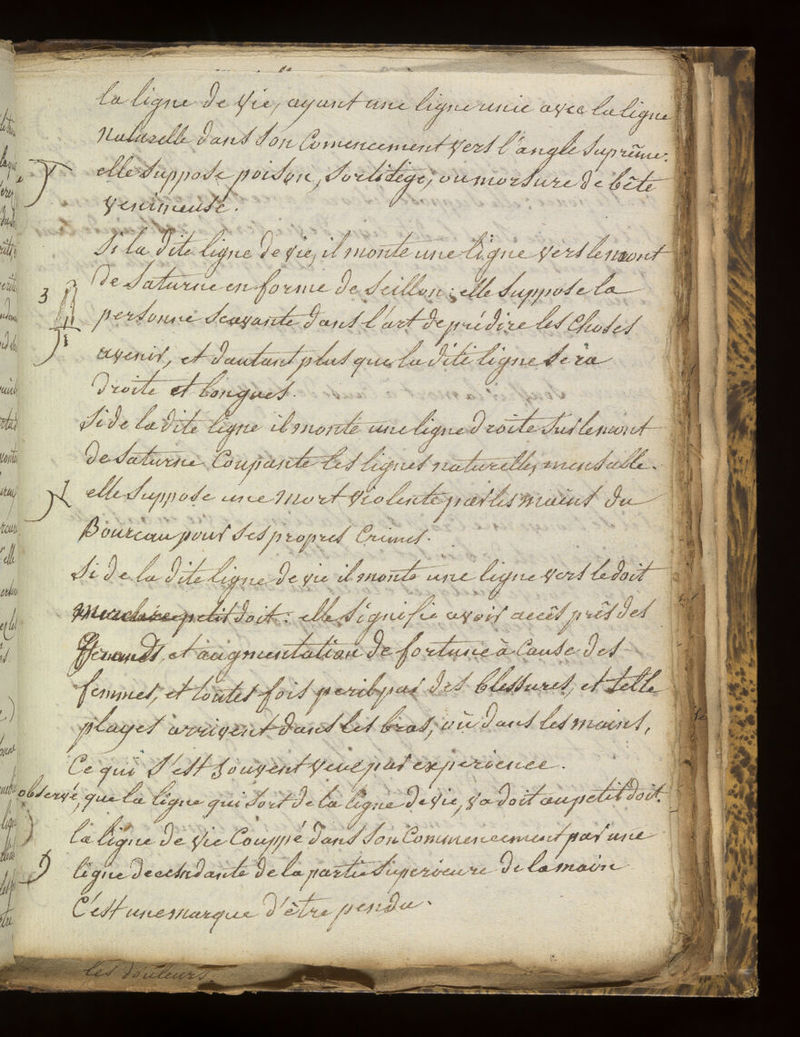 la ligne de vie, ayant une ligne unie avec la ligne
naturelle dans son Comencement vers l'angle suprême.
elle suppose poison, sortilége, ou morsure de bête
venimeuse.
Si la dite ligne de vie, il monte une ligne vers le mont
3 de Saturne en forme de Seillon : elle suppose la
personne scavante dans l'art de prédire les Choses
avenir, et dautant plus que la dite ligne sera
droite et longues.
Si de la dite ligne il monte une ligne droite sur le mont
de Saturne Coupante les lignes naturelle, mensalle.
elle suppose une mort violente par les mains du
Boureau pour ses propres Crimes.
Si de la dite ligne de vie il monte une ligne vers le doit
petit doit : elle signifie avoir accês prês des
et augmentation de fortune à Cause des
femmes, et toutes fois peril par des blessures, et telle
playes arrivent dans les bras, où dans les mains,
Ce qui s'est souvent veüe par experience.
observé, que la ligne qui sort de la ligne de vie, va doit au petit doit.
la ligne de vie Couppé dans son Commencement par une
ligne decendante de la partie Superieure de la main
C'est une marque d'être pendu.
les douleurs.